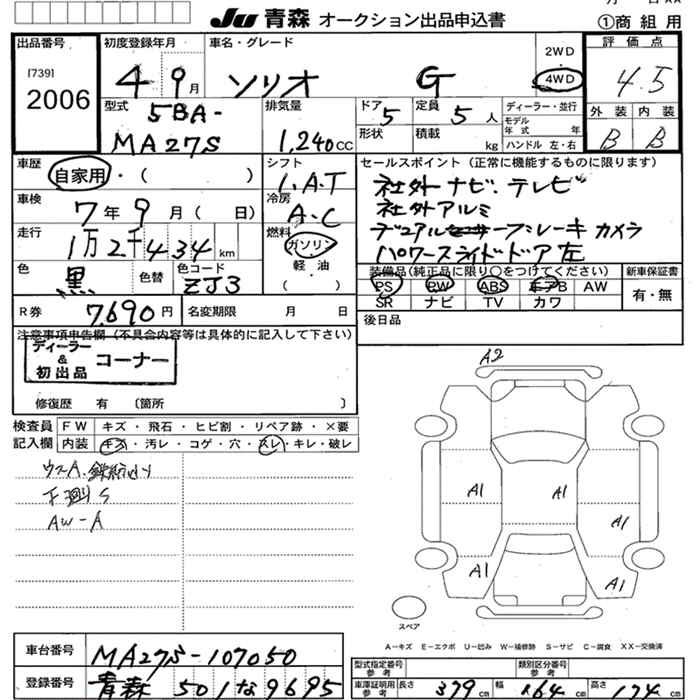 Ju 青森 オークション出品申込書
①商組用
出品番号
[739]
2006
初度登録年月
4 9月
車名・グレード
ソリオ G
2WD
4WD
評価点
4.5
型式
5BA-
MA27S
排気量
1,240cc
ドア
5
定員
5人
形状
積載
kg
ディーラー・並行
モデル
年式 年
ハンドル 左・右
外装 内装
B B
車歴
自家用・( )
シフト
I.A.T
セールスポイント(正常に機能するものに限ります)
社外ナビ.テレビ
社外アルミ
デュアルセンサーブレーキ カメラ
パワースライドドア左
車検
7年9月( 日)
冷房
A-C
走行
1万2千434km
燃料
ガソリン
軽・油
( )
色
黒
色替
色コード
ZJ3
装備品(純正品に限り○をつけてください)
PS PW ABS エアB AW
SR ナビ TV カワ
新車保証書
有・無
R券
7,690円
名変期限 月 日
後日品
注意事項申告欄(不具合内容等は具体的に記入して下さい)
ディーラー
&
初出品
コーナー
修復歴 有 〔箇所 〕
検査員
記入欄
FW キズ・飛石・ヒビ割・リペア跡・×要
内装 キズ・汚レ・コゲ・穴・スレ・キレ・破レ
下廻りS
AW-A
A2
A1
A1
A1
A1
A1
スペア
A-キズ E-エクボ U-凹み W-補修跡 S-サビ C-腐食 XX-交換済
車台番号
MA27S-107050
登録番号
青森 501 な 9695
型式指定番号
参考
類別区分番号
参考
車庫証明用
参考
長さ 379cm
幅 164cm
高さ 174cm